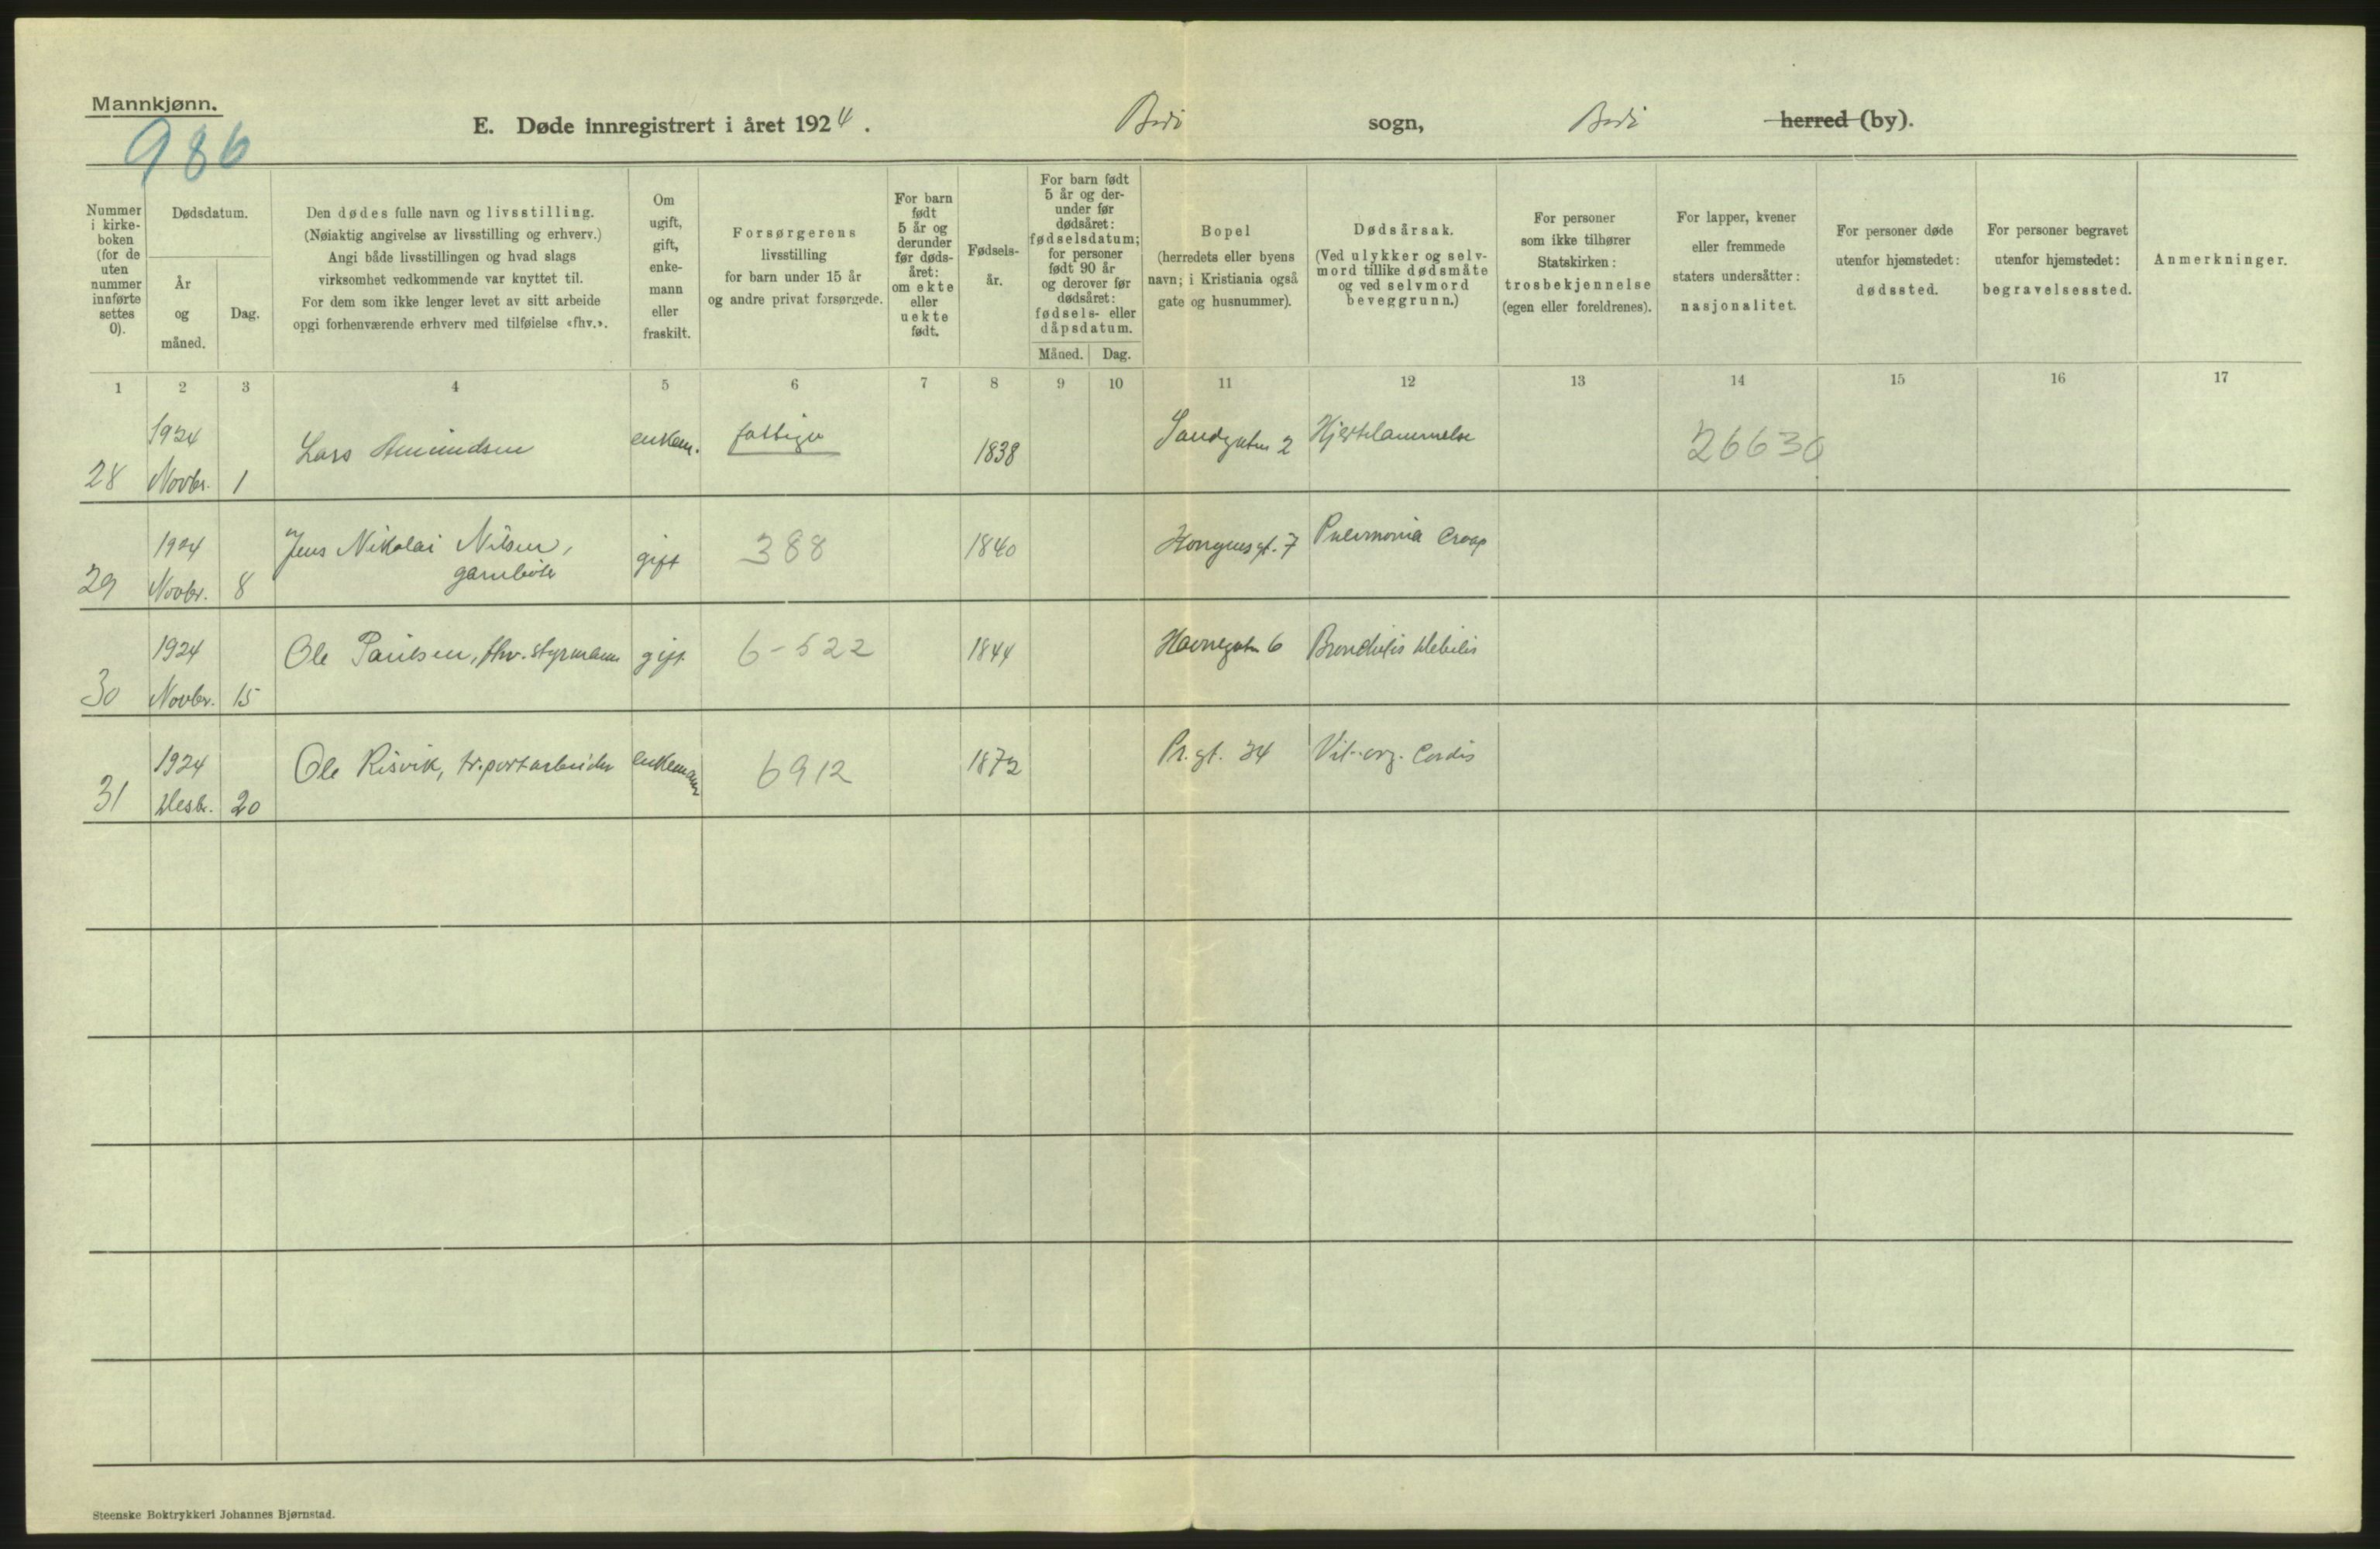 Mannkjønn.
986
E. Døde innregistrert i året 1924. Bodö sogn, Bodö herred (by).
Nummer i kirke-boken (for de uten nummer innførte settes 0).
Dødsdatum.
År og måned.
Dag.
Den dødes fulle navn og livsstilling.
(Nøiaktig angivelse av livsstilling og erhverv.)
Angi både livsstillingen og hvad slags
virksomhet vedkommende var knyttet til.
For dem som ikke lenger levet av sitt arbeide
opgi forhenværende erhverv med tilføielse «fhv.».
Om ugift, gift, enke-mann eller fraskilt.
Forsørgerens
livsstilling
for barn under 15 år
og andre privat forsørgede.
For barn født 5 år og derunder før døds-året: om ekte eller uekte født.
Fødsels-år.
For barn født 5 år og der-under før dødsåret: fødselsdatum; for personer født 90 år og derover før dødsåret: fødsels- eller dåpsdatum.
Måned.
Dag.
Bopel
(herredets eller byens
navn; i Kristiania også
gate og husnummer).
Dødsårsak.
(Ved ulykker og selv-
mord tillike dødsmåte
og ved selvmord
beveggrunn.)
For personer
som ikke tilhører
Statskirken:
trosbekjennelse
(egen eller foreldrenes).
For lapper, kvener
eller fremmede
staters undersåtter:
nasjonalitet.
For personer døde
utenfor hjemstedet:
dødssted.
For personer begravet
utenfor hjemstedet:
begravelsessted.
Anmerkninger.
1 2 3 4 5 6 7 8 9 10 11 12 13 14 15 16 17
28 1924 Novbr. 1 Lars Amundsen enkem. fattigv 1838 Sandgaten 2 Hjertelammelse 26630
29 1924 Novbr. 8 Jens Nikolai Nilsen, garnbøter gift 388 1840 Kongensgt. 7 Pneumonia Croup
30 1924 Novbr. 15 Ole Paulsen, fhv. styrmann gift 6-522 1844 Havnegatn 6 Bronchitis
31 1924 Desbr. 20 Ole Risvik, tr.portarbeider enkemann 6912 1872 Pr. gt. 34 Vit. org. Cordis
Steenske Boktrykkeri Johannes Bjørnstad.